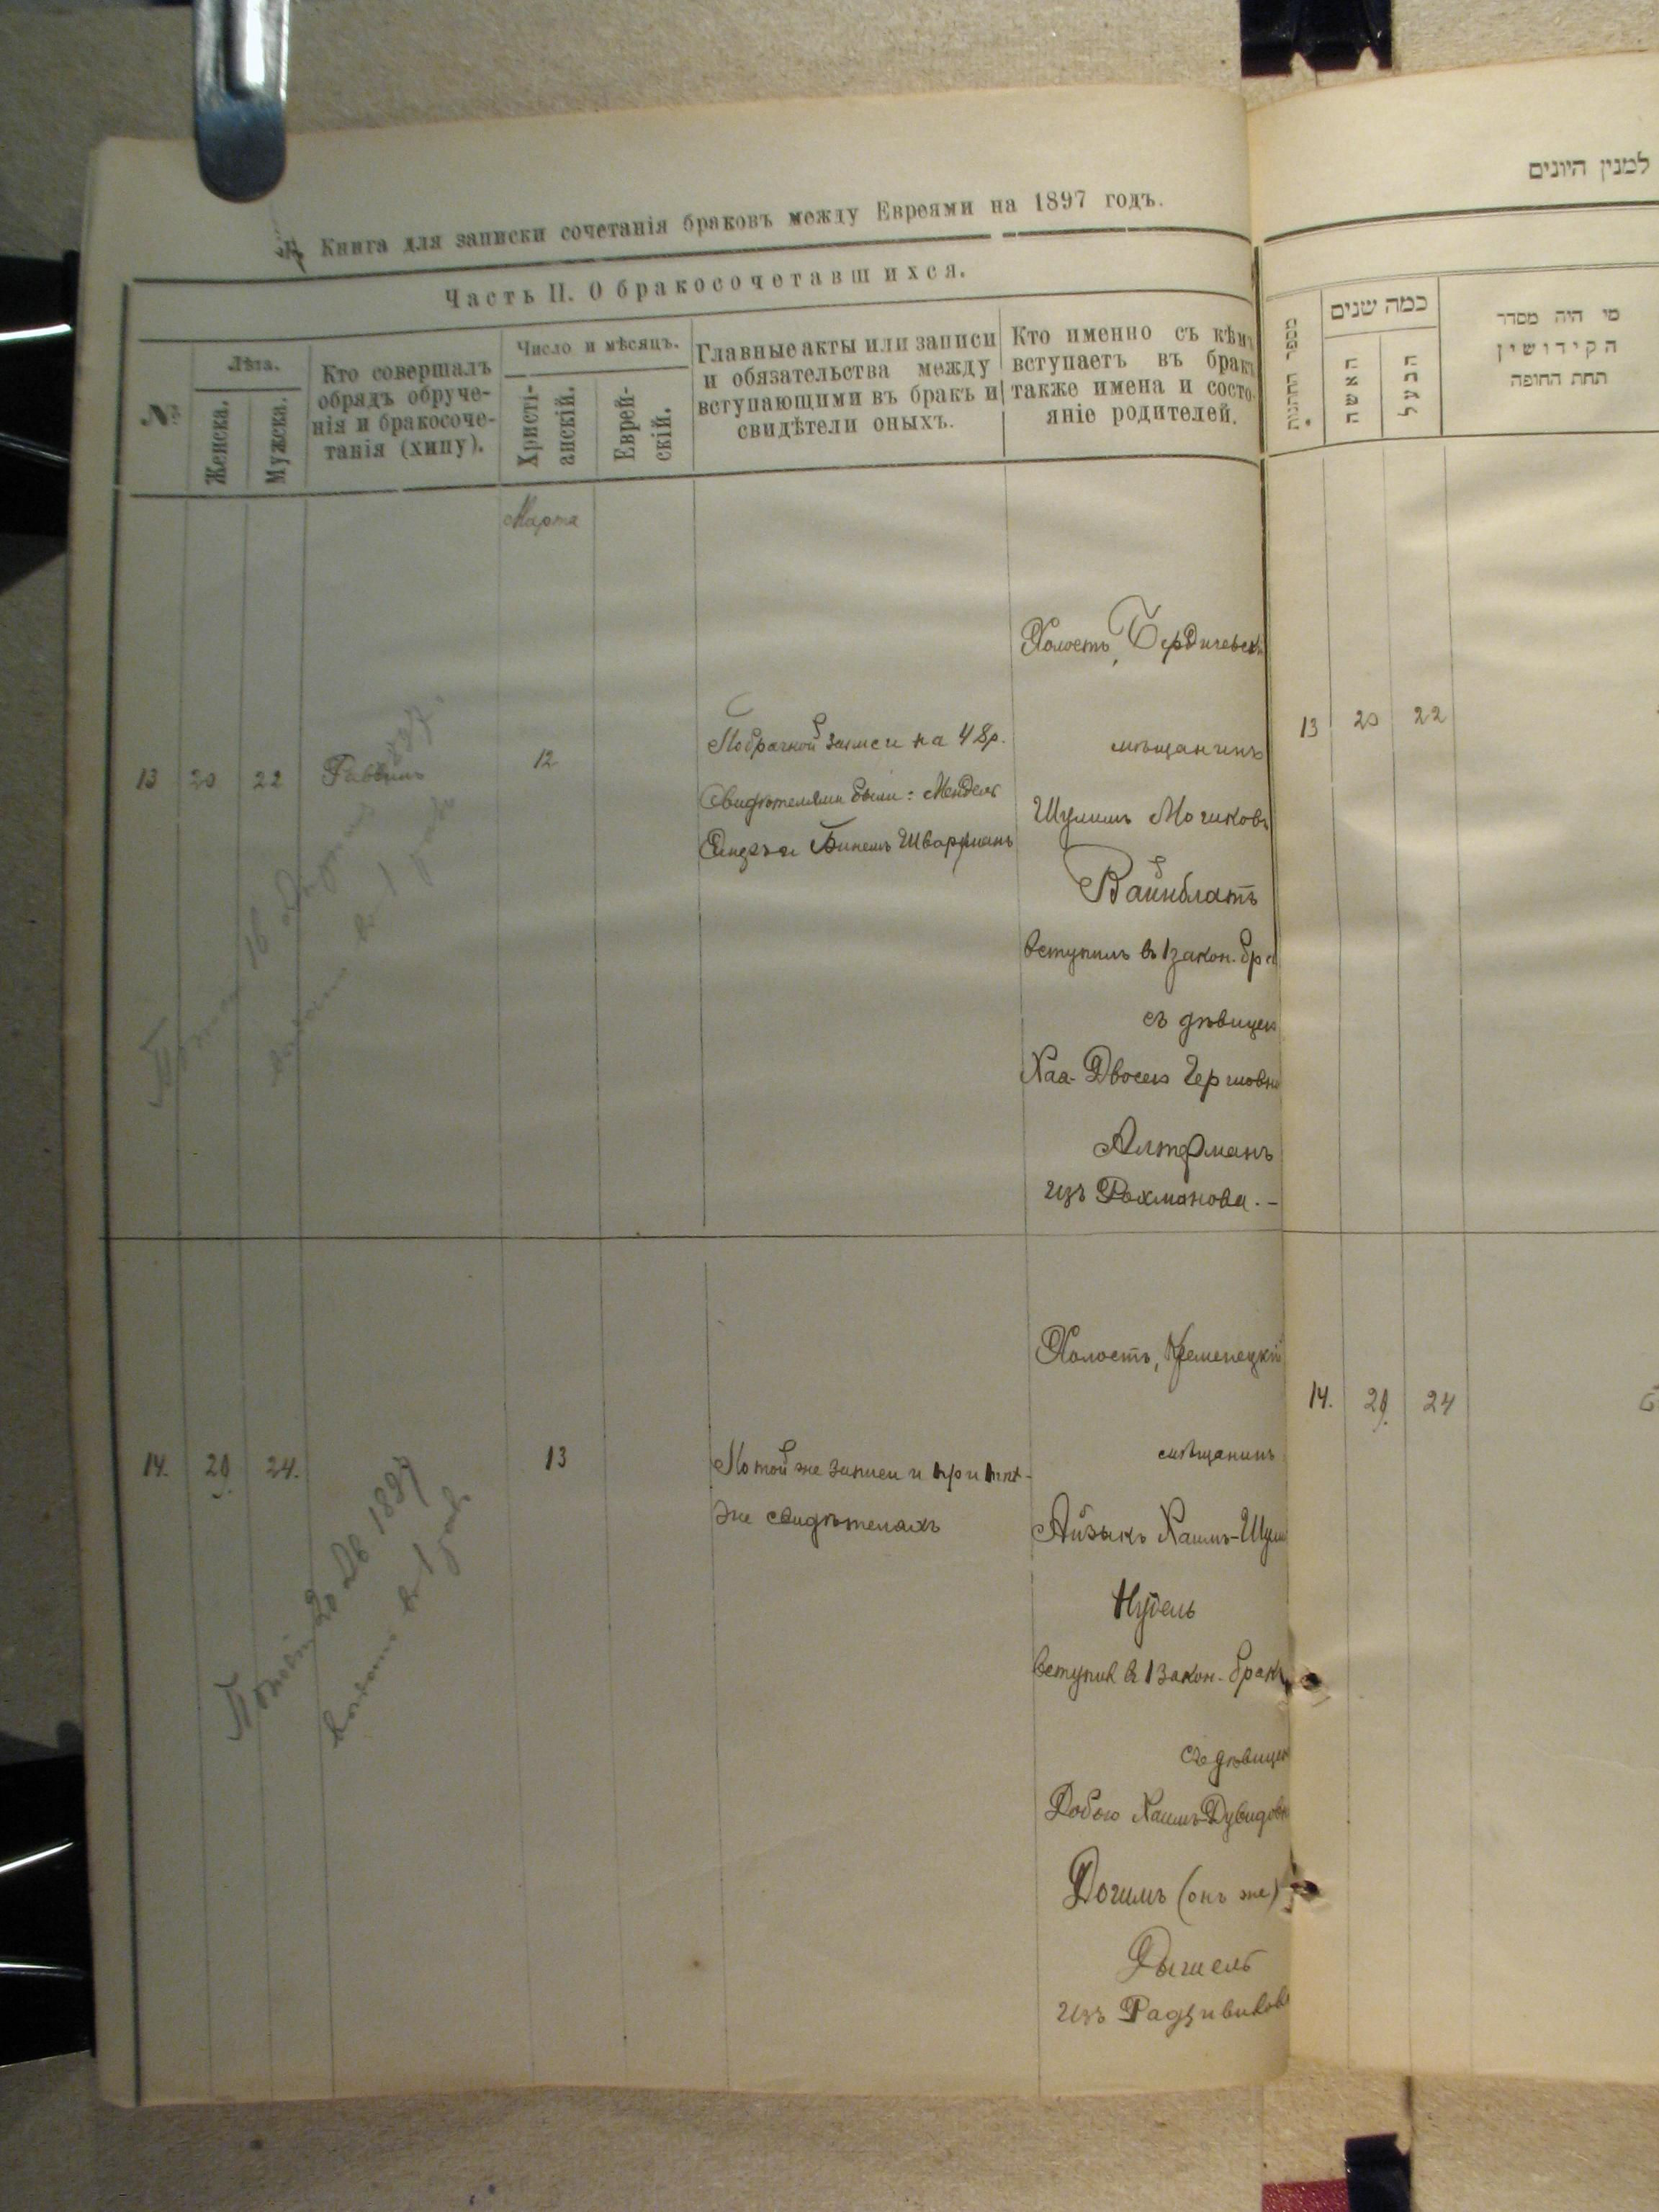 Книга для записки сочетанія браковъ между Евреями на 1897 годъ.
Часть II. О бракосочетавшихся.
№
Лѣта.
Женска.
Мужска.
Кто совершалъ
обрядъ обруче-
нія и бракосоче-
танія (хипу).
Число и мѣсяцъ.
Христі-
анскій.
Еврей-
скій.
Главные акты или записи
и обязательства между
вступающими въ бракъ и
свидѣтели оныхъ.
Кто именно съ кѣмъ
вступаетъ въ бракъ
также имена и состо-
яніе родителей.
Марта
13 20 22 Раввинъ 12
По брачной записи на 48 р.
Свидѣтелями были: Мендель
Бинемъ Шварцманъ
Холостъ, Бердичевскі
мѣщанинъ
Шулимъ
Вайнблатъ
вступилъ въ 1 закон. бра
съ дѣвицею
Хая-Двосею Гершовн
Алтерманъ
изъ Рахманова. –
14. 20 24. 13
По той же записи и при тѣхъ-
же свидѣтеляхъ
Холостъ, Кременецкій
мѣщанинъ
Айзыкъ Хаимъ-Шул
Нудель
вступил въ 1 закон. бракъ
съ дѣвицею
Добою Хаимъ-Дувидовн
(онъ же)
изъ Радзивилов
1897
в 1 разъ
למנין היונים
מספר החתונות
כמה שנים
האשה
הבעל
מי היה מסדר
הקידושין
תחת החופה
13 20 22
14. 20 24